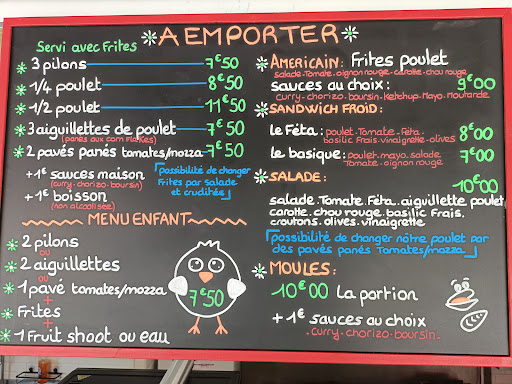 A EMPORTER
Servi avec Frites
3 pilons 7€50
1/4 poulet 8€50
1/2 poulet 11€50
3 aiguillettes de poulet 7€50
(panés aux corn Flakes)
2 pavés panés tomates/mozza 7€50
+1€ sauces maison
(curry-chorizo-boursin)
+1€ boisson
(non alcoolisée)
possibilité de changer
Frites par salade
et crudités
MENU ENFANT
2 pilons
ou
2 aiguillettes
ou
1 pavé tomates/mozza
+
Frites
+
1 Fruit shoot ou eau
7€50
AMERICAIN: Frites poulet
salade.Tomate.oignon rouge.carotte.chou rouge
sauces au choix: 9€00
curry-chorizo-boursin-Ketchup-Mayo-moutarde
SANDWICH FROID:
le Féta: poulet.Tomate.Féta. 8€00
basilic Frais.vinaigrette.olives
le basique: poulet.mayo.salade 7€00
Tomate.oignon rouge
SALADE: 10€00
salade.Tomate.Féta.aiguillette poulet
carotte.chou rouge.basilic Frais.
croutons.olives.vinaigrette
possibilité de changer nôtre poulet par
des pavés panés Tomates/mozza
MOULES:
10€00 La portion
+1€ sauces au choix
-curry-chorizo-boursin-